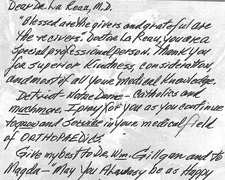 Dear Dr. La Reau, M.D.
"Blessed are the givers and grateful are
the recivers". Doctor La Reau, you are a
special professional person. Thank you
for superior kindness, consideration,
and most of all your medical knowledge.
Detroit Notre Dame - Catholics and
much more. I pray for you as you continue
to grow and service in your medical field
of ORTHOPAEDICS
Give my best to Dr. Wm. Gilligan and to
Magda - May you Always be as Happy